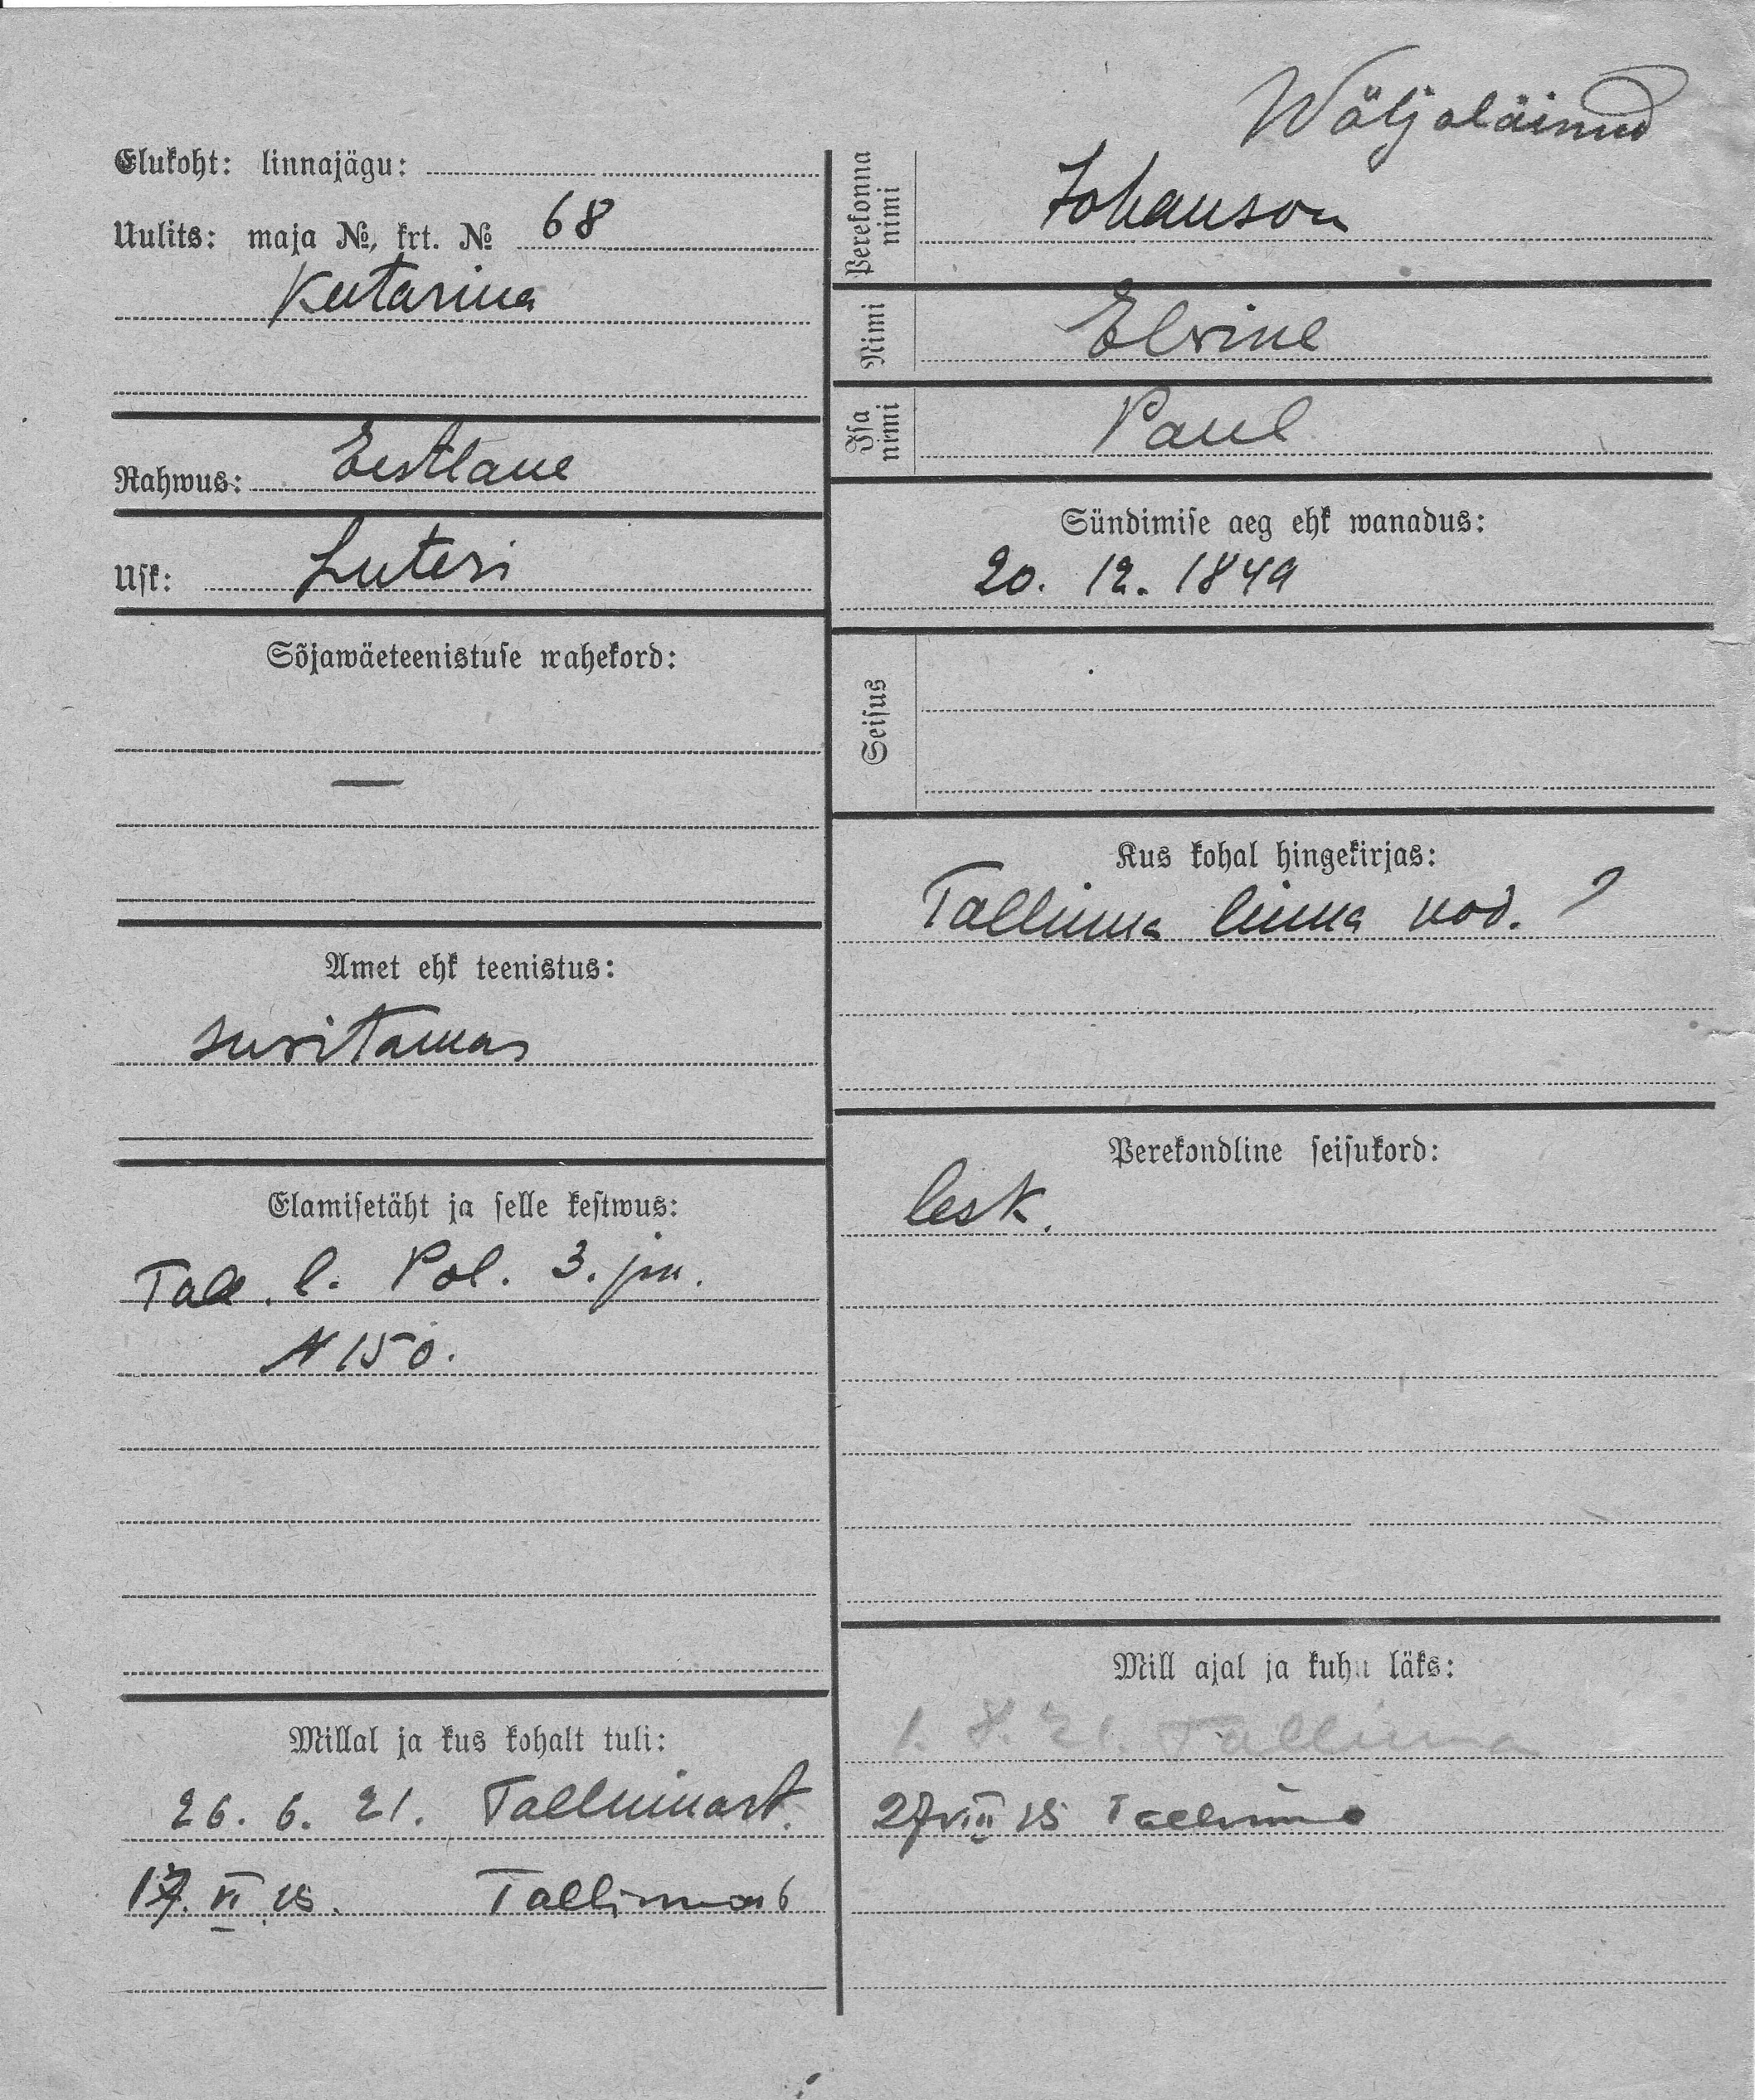 Wäljaläinud
Elukoht: linnajägu:
Uulits: maja №, krt. № 68
Katarina
Rahwus: Eestlane
Usk: Luteri
Sõjawäeteenistuse wahekord:
—
Amet ehk teenistus:
suvitamas
Elamisetäht ja selle kestwus:
Tall. l. Pol. 3. jsk.
N 150.
Millal ja kus kohalt tuli:
26. 6. 21. Tallinnast.
17. VI 25. Tallinnast
Perekonna nimi Johanson
Nimi Elvine
Isa nimi Paul
Sündimise aeg ehk wanadus:
20. 12. 1849
Seisus
Kus kohal hingekirjas:
Tallinna linna kod. ?
Perekondline seisukord:
lesk.
Mill ajal ja kuhu läks:
1. 8. 21. Tallinna
27 VIII 25 Tallinna